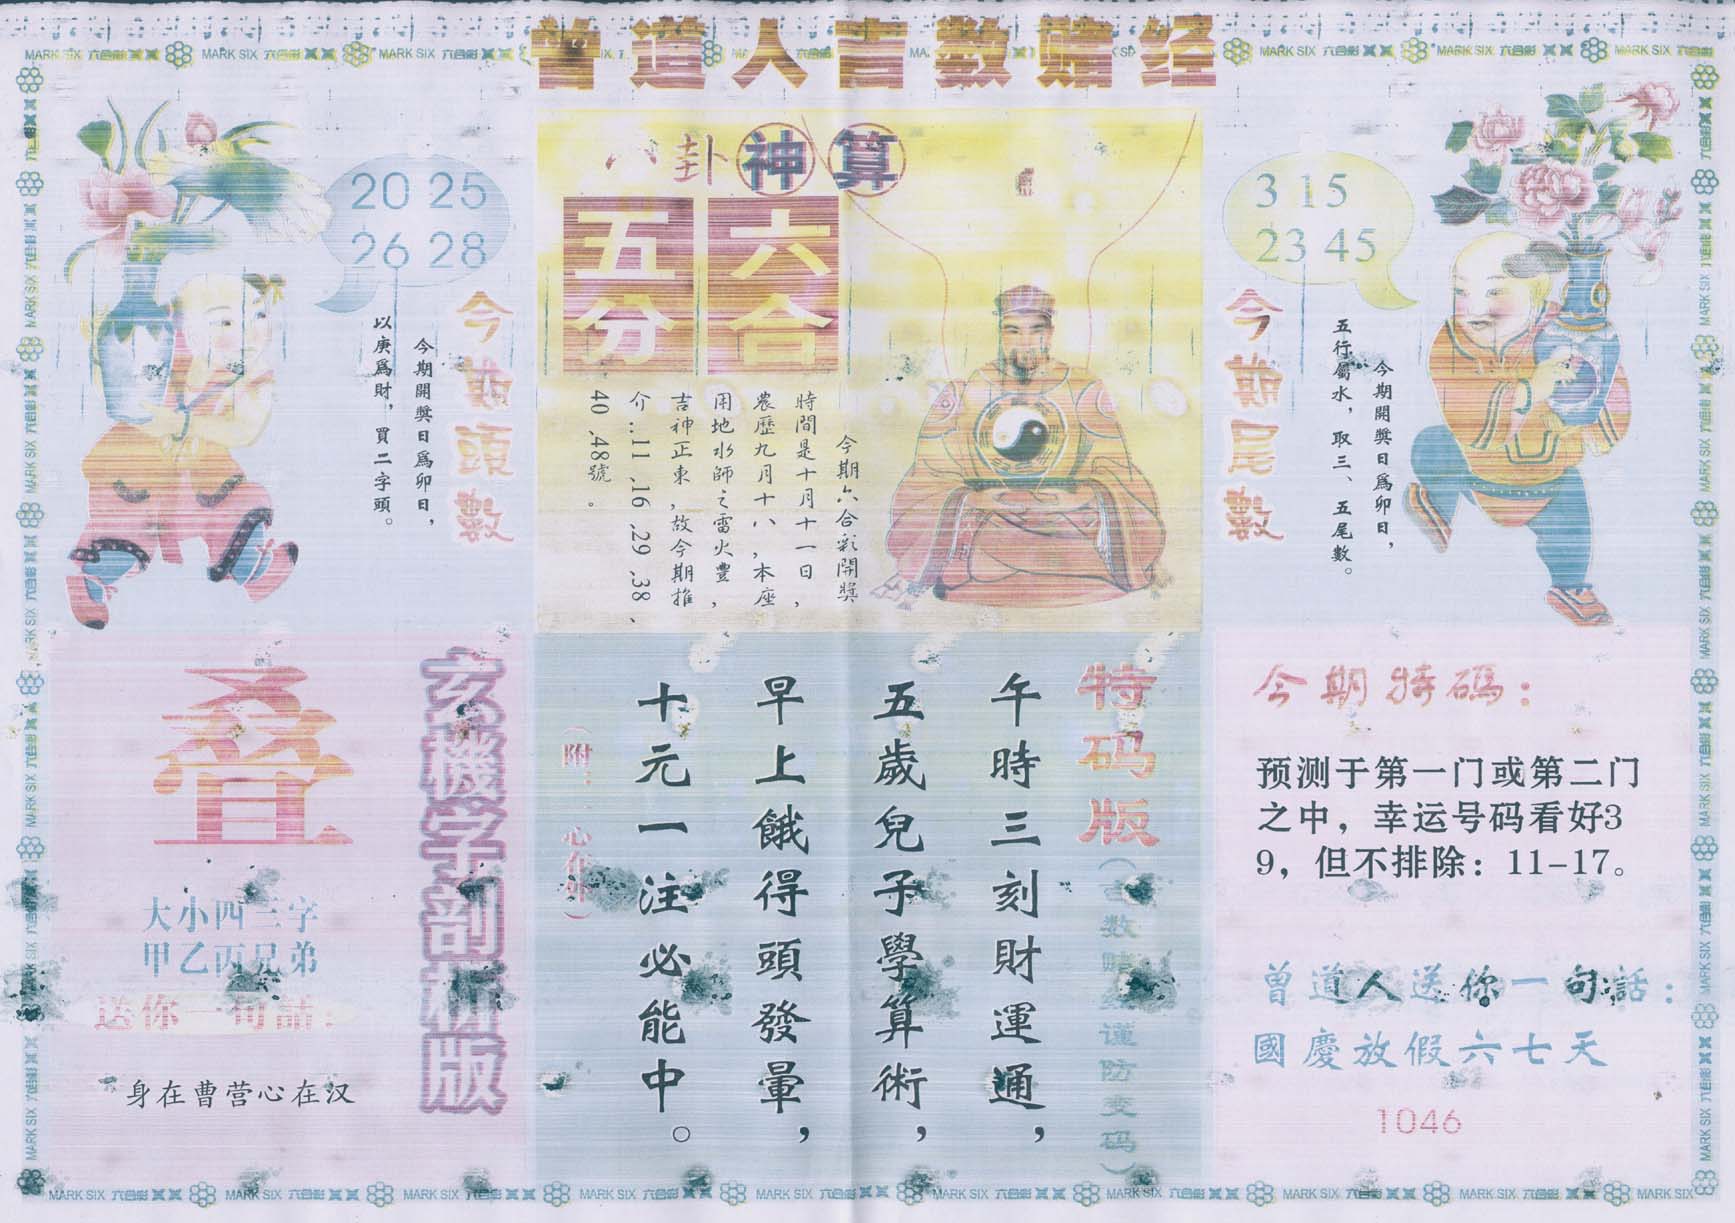 曾道人吉数赌经
MARK SIX 六合彩
八卦神算
六合
五分
今期六合彩開獎
時間是十月十一日，
農歷九月十八，本座
用地水師之雷火豐，
吉神正東，故今期推
介：.11 .16 .29 .38 、
40 .48號。
20 25
26 28
今期頭數
今期開獎日爲卯日，
以庚爲財，買二字頭。
3 15
23 45
今期尾數
今期開獎日爲卯日，
五行屬水，取三、五尾數。
玄機字剖析版
叠
大小四三字
甲乙丙兄弟
送你一句話：
身在曹营心在汉
特码版
(吉数赌经谨防变码)
午時三刻財運通，
五歲兒子學算術，
早上餓得頭發暈，
十元一注必能中。
(附：心在外)
今期特碼：
预测于第一门或第二门
之中，幸运号码看好3
9，但不排除：11-17。
曾道人送你一句話：
國慶放假六七天
1046